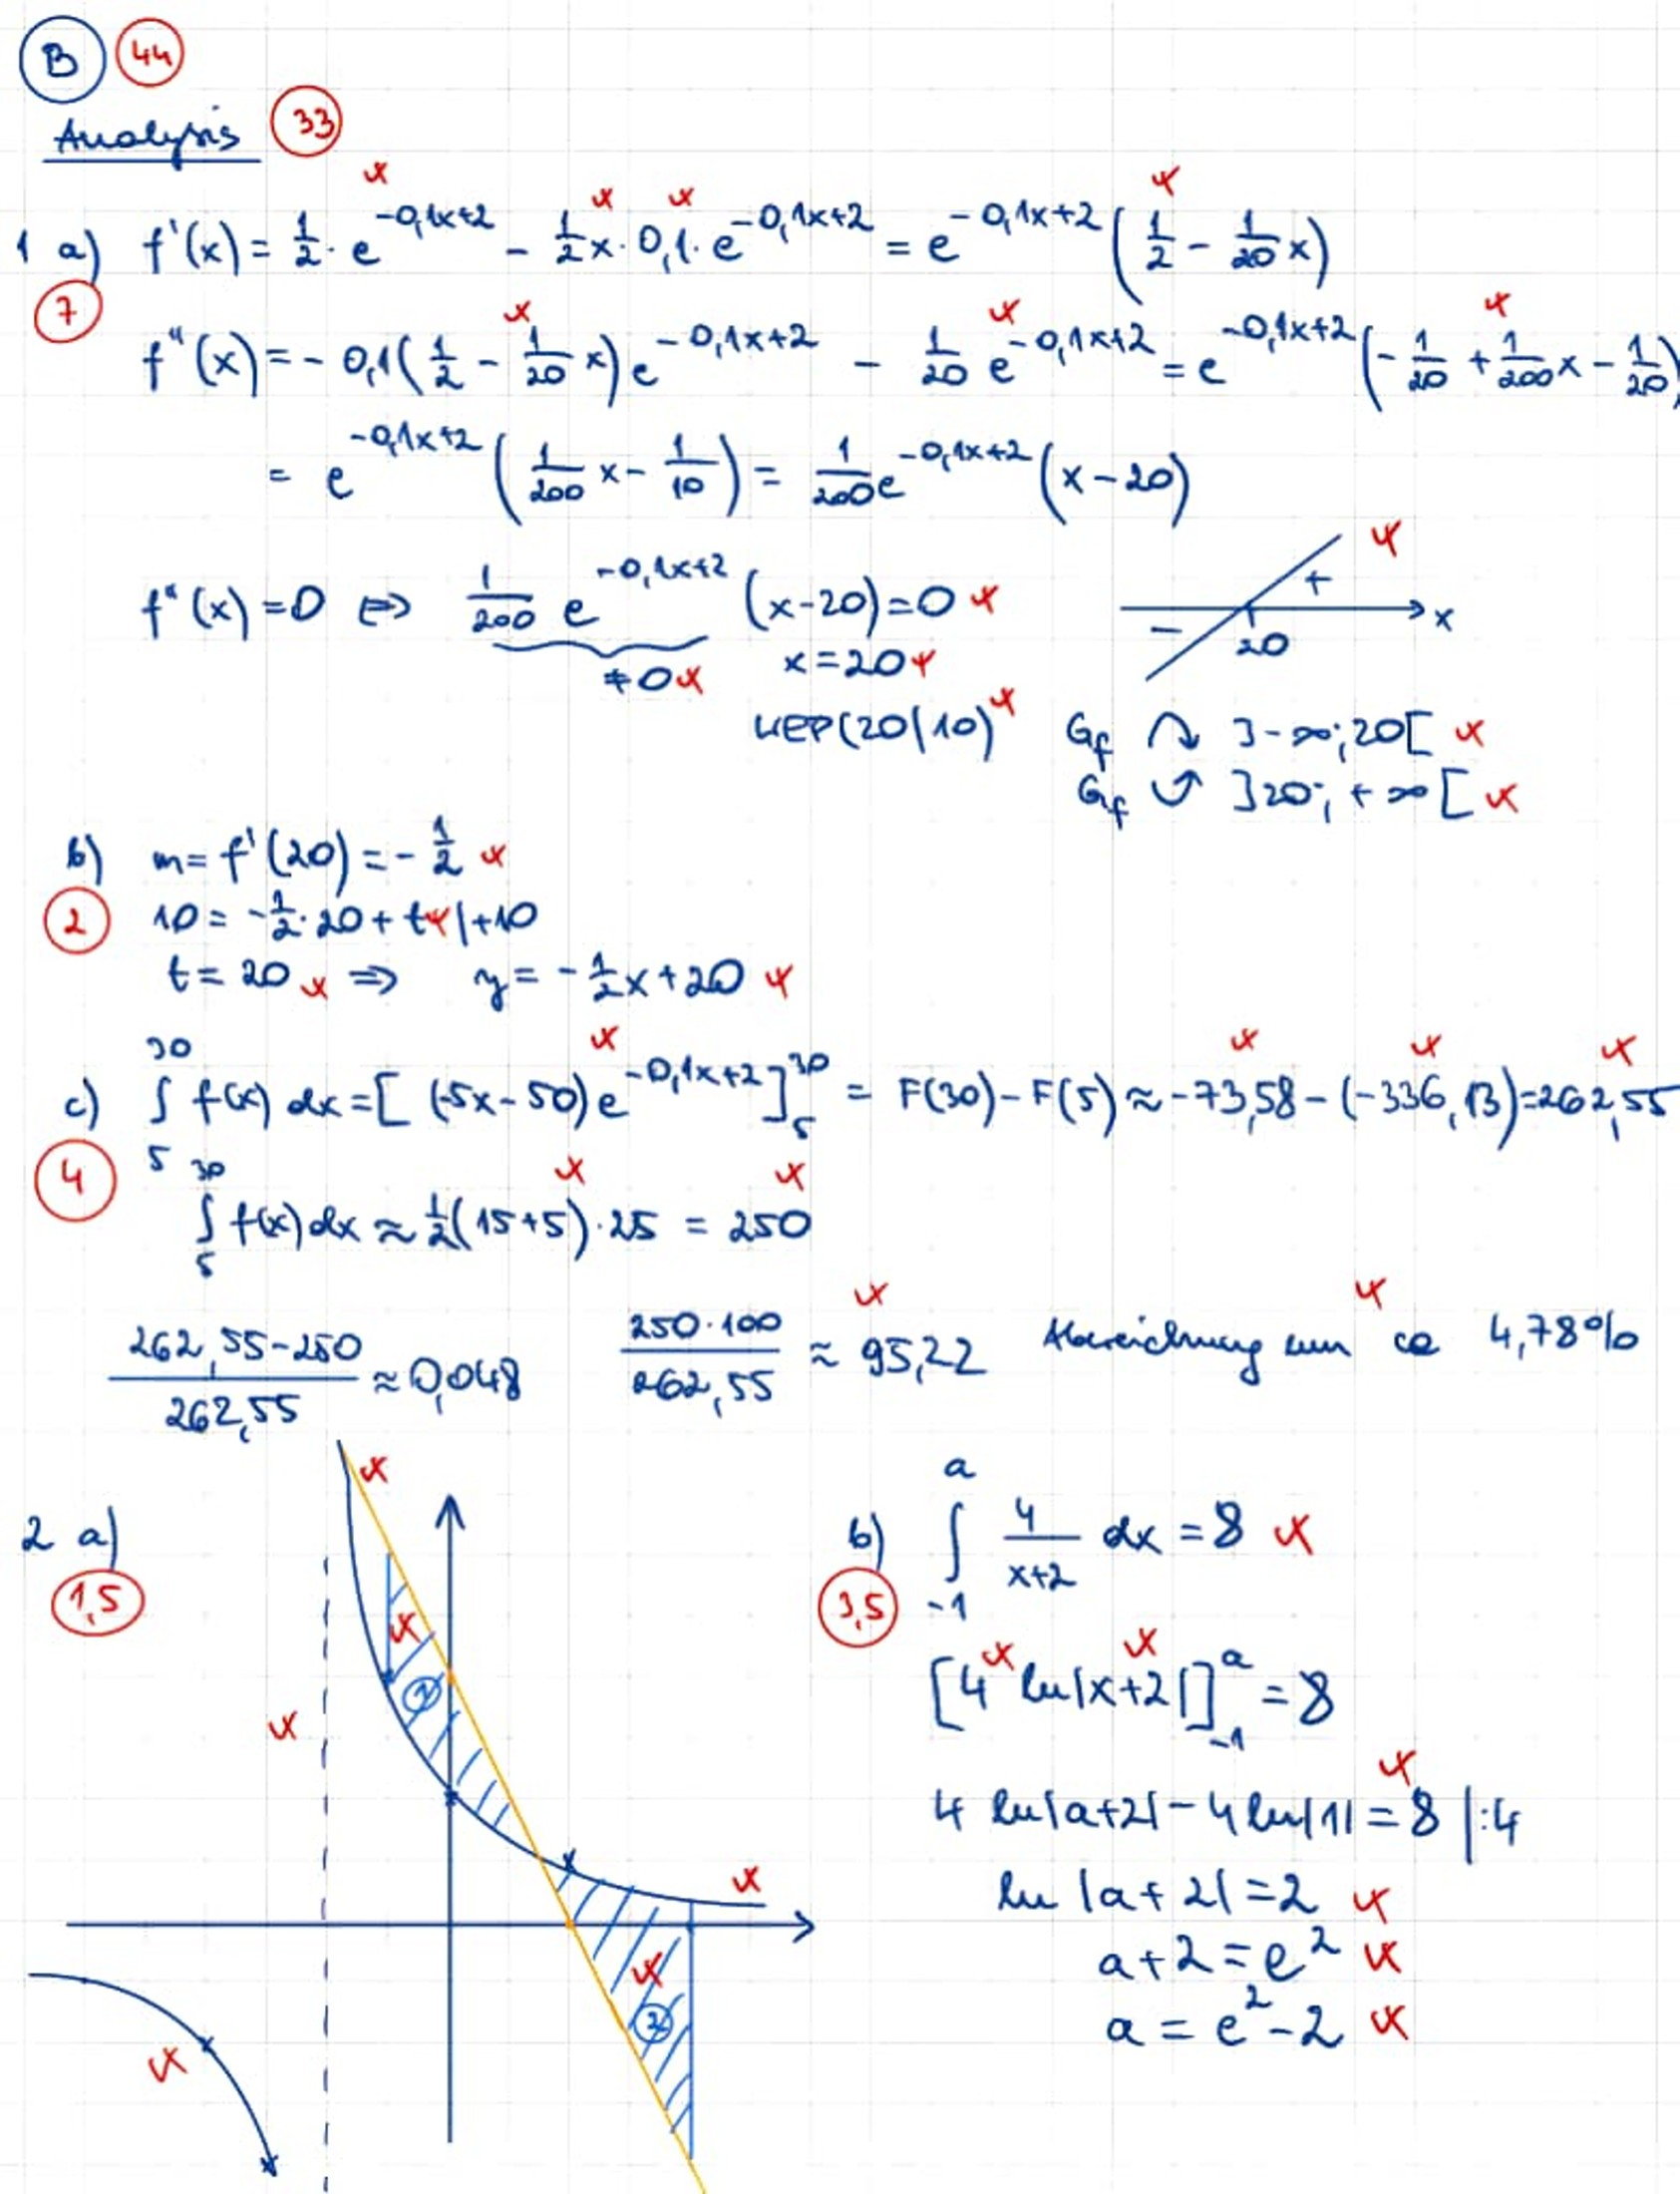 B 44
Analysis 33
1 a) f'(x) = 1/2 · e^(-0,1x+2) - 1/2 x · 0,1 · e^(-0,1x+2) = e^(-0,1x+2) (1/2 - 1/20 x)
7
f''(x) = - 0,1 (1/2 - 1/20 x) e^(-0,1x+2) - 1/20 e^(-0,1x+2) = e^(-0,1x+2) (- 1/20 + 1/200 x - 1/20)
= e^(-0,1x+2) (1/200 x - 1/10) = 1/200 e^(-0,1x+2) (x - 20)
f''(x) = 0 ⇔ 1/200 e^(-0,1x+2) (x-20) = 0
≠0 x = 20
WEP(20|10)
- + 20 x
Gf ↷ ]-∞; 20[
Gf ↺ ]20; +∞[
b) m = f'(20) = - 1/2
2 10 = - 1/2 · 20 + t |+10
t = 20 ⇒ y = - 1/2 x + 20
c) ∫_5^30 f(x) dx = [(-5x - 50) e^(-0,1x+2)]_5^30 = F(30) - F(5) ≈ -73,58 - (-336,13) = 262,55
4
∫_5^30 f(x) dx ≈ 1/2 (15+5) · 25 = 250
(262,55-250)/262,55 ≈ 0,048 (250·100)/262,55 ≈ 95,22 Abweichung um ca 4,78%
2 a)
1,5
1
2
b) ∫_-1^a 4/(x+2) dx = 8
3,5
[4 ln|x+2|]_-1^a = 8
4 ln|a+2| - 4 ln|1| = 8 |:4
ln |a+2| = 2
a+2 = e^2
a = e^2 - 2